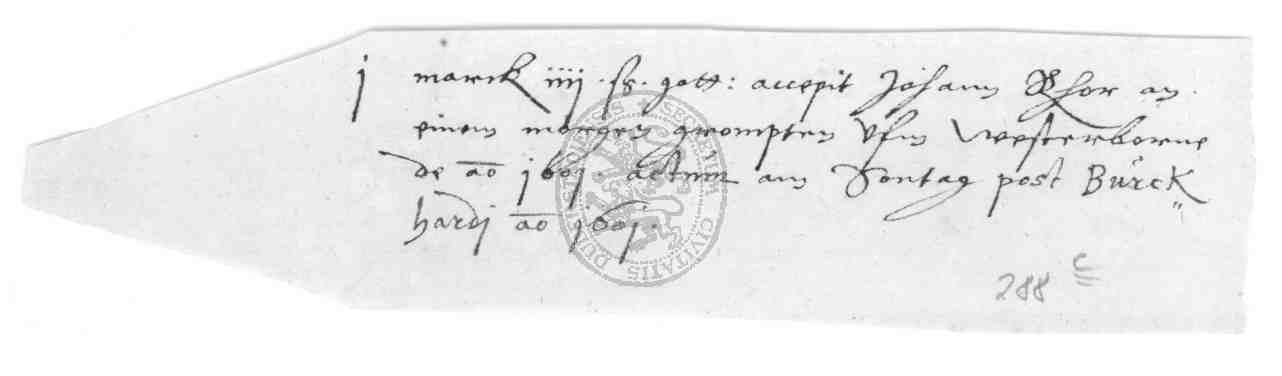 j marck iiij ß. gott: accepit Johann Rhor an
einem morgen gerompten vfm Westerborne
de ao 1601. actum am Sontag post Bürck„
hardj ao 1601.
288 c
SECRETUM CIVITATIS DUDERSTADENSIS